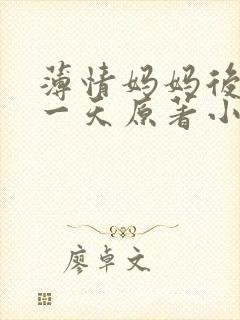 薄情妈妈後
一天原著小
廖卓文